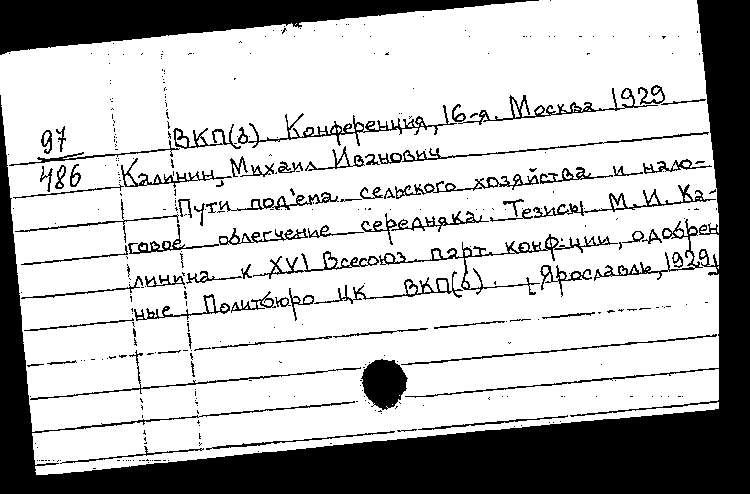 97
486
ВКП(б). Конференция, 16-я. Москва. 1929
Калинин, Михаил Иванович
Пути под'ема сельского хозяйства и нало-
говое облегчение середняка. Тезисы М.И. Ка-
линина к XVI Всесоюз. парт. конф-ции, одобрен
ные Политбюро ЦК ВКП(б). [Ярославль, 1929]